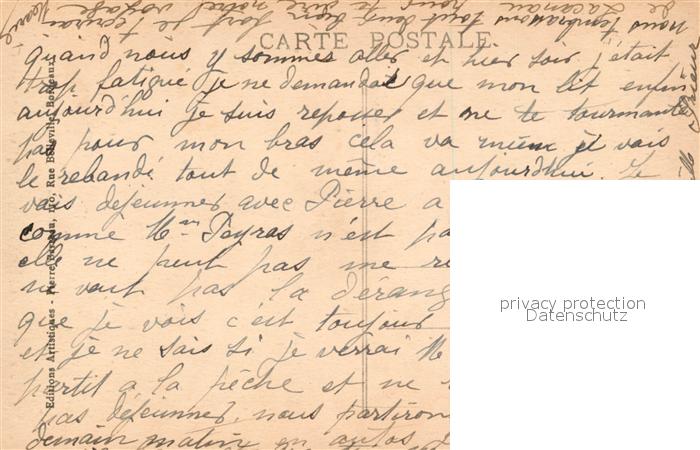 CARTE POSTALE
quand nous y sommes aller et hier soir j'était
trop fatigué je ne demandai que mon lit enfin
aujourd'hui je suis reposser et ne te tourmante
pas pour mon bras cela va mieux je vais
le rebandé tout de même aujourd'hui. Je
vais déjeunner avec Pierre a
comme Mme Peyras n'est pa
elle ne peut pas me re
ne veut pas la derang
que je vois c'est toujour
et je ne sais si je verrai M
partit a la pêche et ne
pas déjeunner, nous partiron
demain matin en autos
nous t'embrassons tout deux bien fort je t'écrirai
de Lacanau pour te dire notre voyage
Editions Artistiques - Pierre, 110, Rue Belleville, Bordeaux
privacy protection
Datenschutz